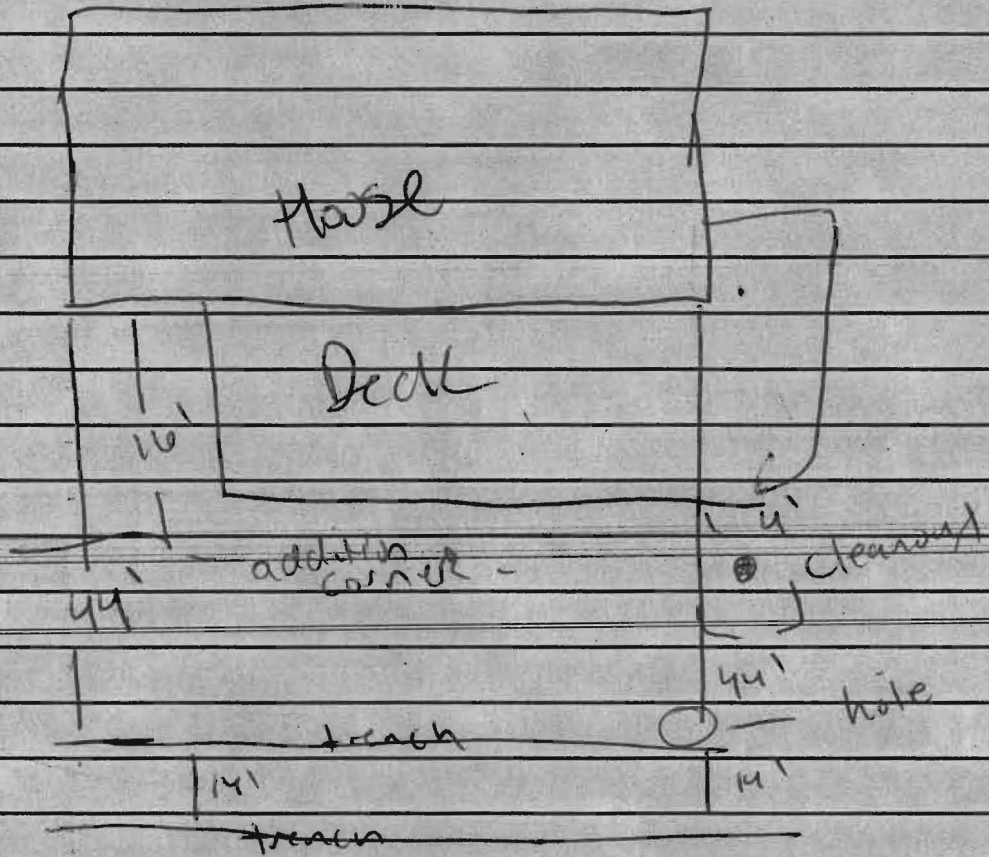 House
Deck
16'
4'
addition
corner
cleanout
44'
44'
hole
trench
14'
14'
trench